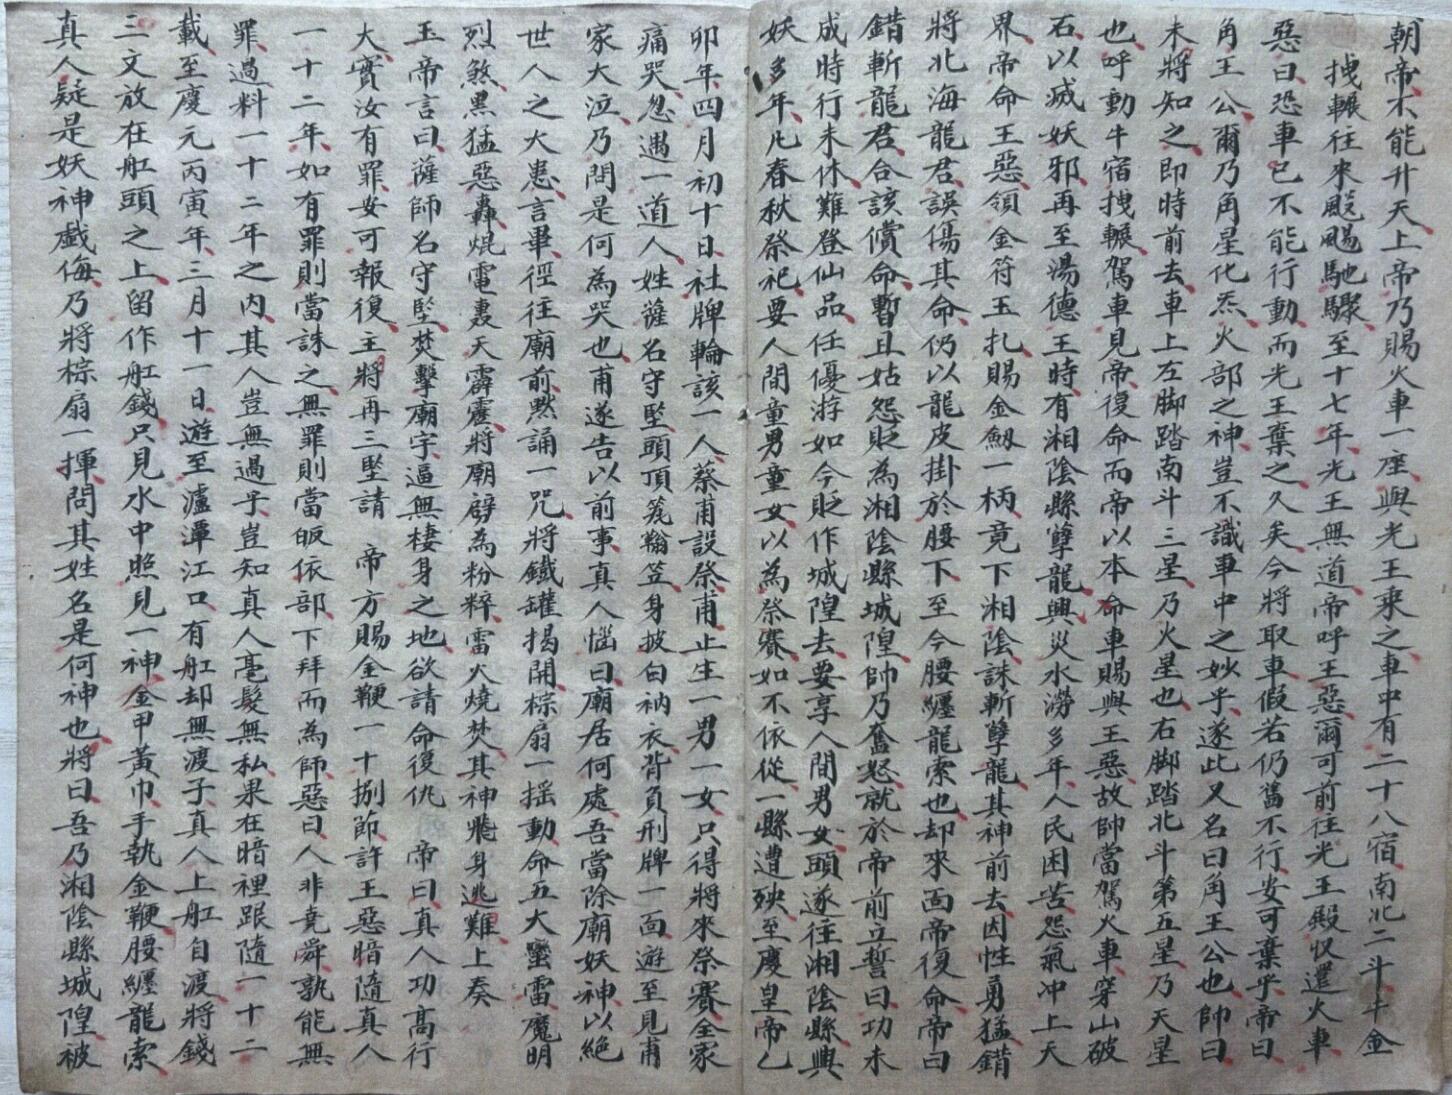 朝帝不能升天上帝乃賜火車一座與光王乘之車中有二十八宿南北二斗牛金
拽輾往來飈颺馳驟至十七年光王無道帝呼王惡爾可前往光王殿収還火車
惡曰恐車已不能行動而光王棄之久矣今將取車假若仍舊不行安可棄乎帝曰
角王公爾乃角星化炁火部之神豈不識車中之妙乎遂此又名曰角王公也帥曰
未將知之即時前去車上左脚踏南斗三星乃火星也右脚踏北斗第五星乃天星
也呼動牛宿拽輾駕車見帝復命而帝以本命車賜與王惡故帥當駕火車穿山破
石以滅妖邪再至湯德王時有湘陰縣孽龍興災水澇多年人民困苦怨氣冲上天
界帝命王惡領金符玉扎賜金劔一柄竟下湘陰誅斬孽龍其神前去因性勇猛錯
將北海龍君誤傷其命仍以龍皮掛於腰下至今腰纏龍索也却來面帝復命帝曰
錯斬龍君合該償命暫且姑怨貶為湘陰縣城隍帥乃奮怒就於帝前立誓曰功未
成時行未休難登仙品任優游如今貶作城隍去要享人間男女頭遂往湘陰縣興
妖多年凡春秋祭祀要人間童男童女以為祭賽如不依從一縣遭殃至慶皇帝乙
卯年四月初十日社牌輪該一人蔡甫設祭甫止生一男一女只得將來祭賽全家
痛哭忽遇一道人姓薩名守堅頭頂箬䈑笠身披白衲衣背負刑牌一面遊至見甫
家大泣乃問是何為哭也甫遂告以前事真人惱曰廟居何處吾當除廟妖神以絶
世人之大患言畢徑往廟前黙誦一咒將鐵罐揭開棕扇一摇動命五大蠻雷魔明
烈煞黑猛惡轟焜電轰天霹靂將廟辟為粉粹雷火燒焚其神將身逃難上奏
玉帝言曰薩師名守堅焚擊廟宇逼無棲身之地欲請命復仇帝曰真人功高行
大實汝有罪安可報復王將再三堅請 帝方賜金鞭一十捌節許王惡暗隨真人
一十二年如有罪則當誅之無罪則當皈依部下拜而為師惡曰人非堯舜孰能無
罪過料一十二年之内其人豈無過乎豈知真人毫髮無私果在暗裡跟隨一十二
載至慶元丙寅年三月十一日遊至瀘潭江口有舡却無渡子真人上舡自渡將錢
三文放在舡頭之上留作舡錢只見水中照見一神金甲黃巾手執金鞭腰纏龍索
真人疑是妖神戲侮乃將棕扇一揮問其姓名是何神也將曰吾乃湘陰縣城隍被